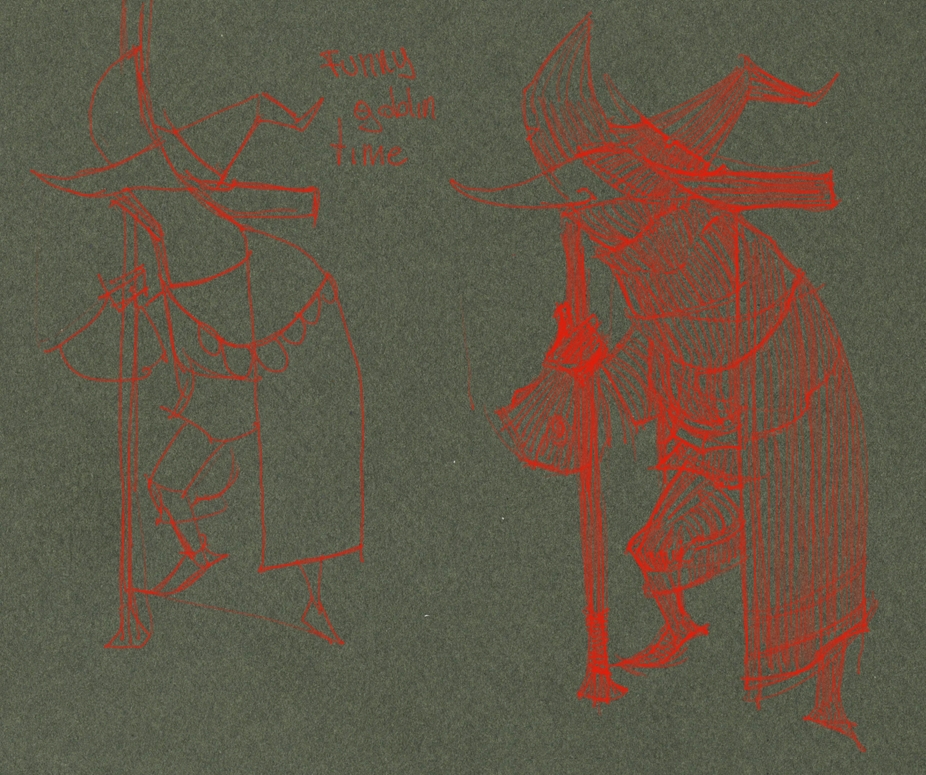 Funky
goblin
time